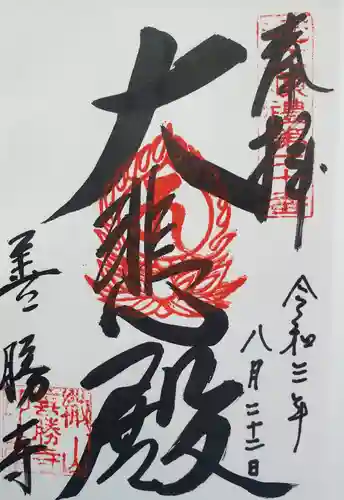 奉拝
令和三年
八月二十二日
大悲殿
善勝寺